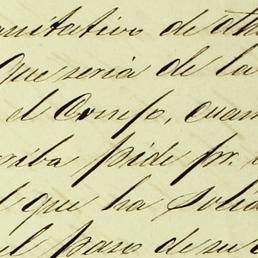 anitativo de
que seria de la
el Consejo, cuan
riba pide pr.
l que ha solic
el paso de su